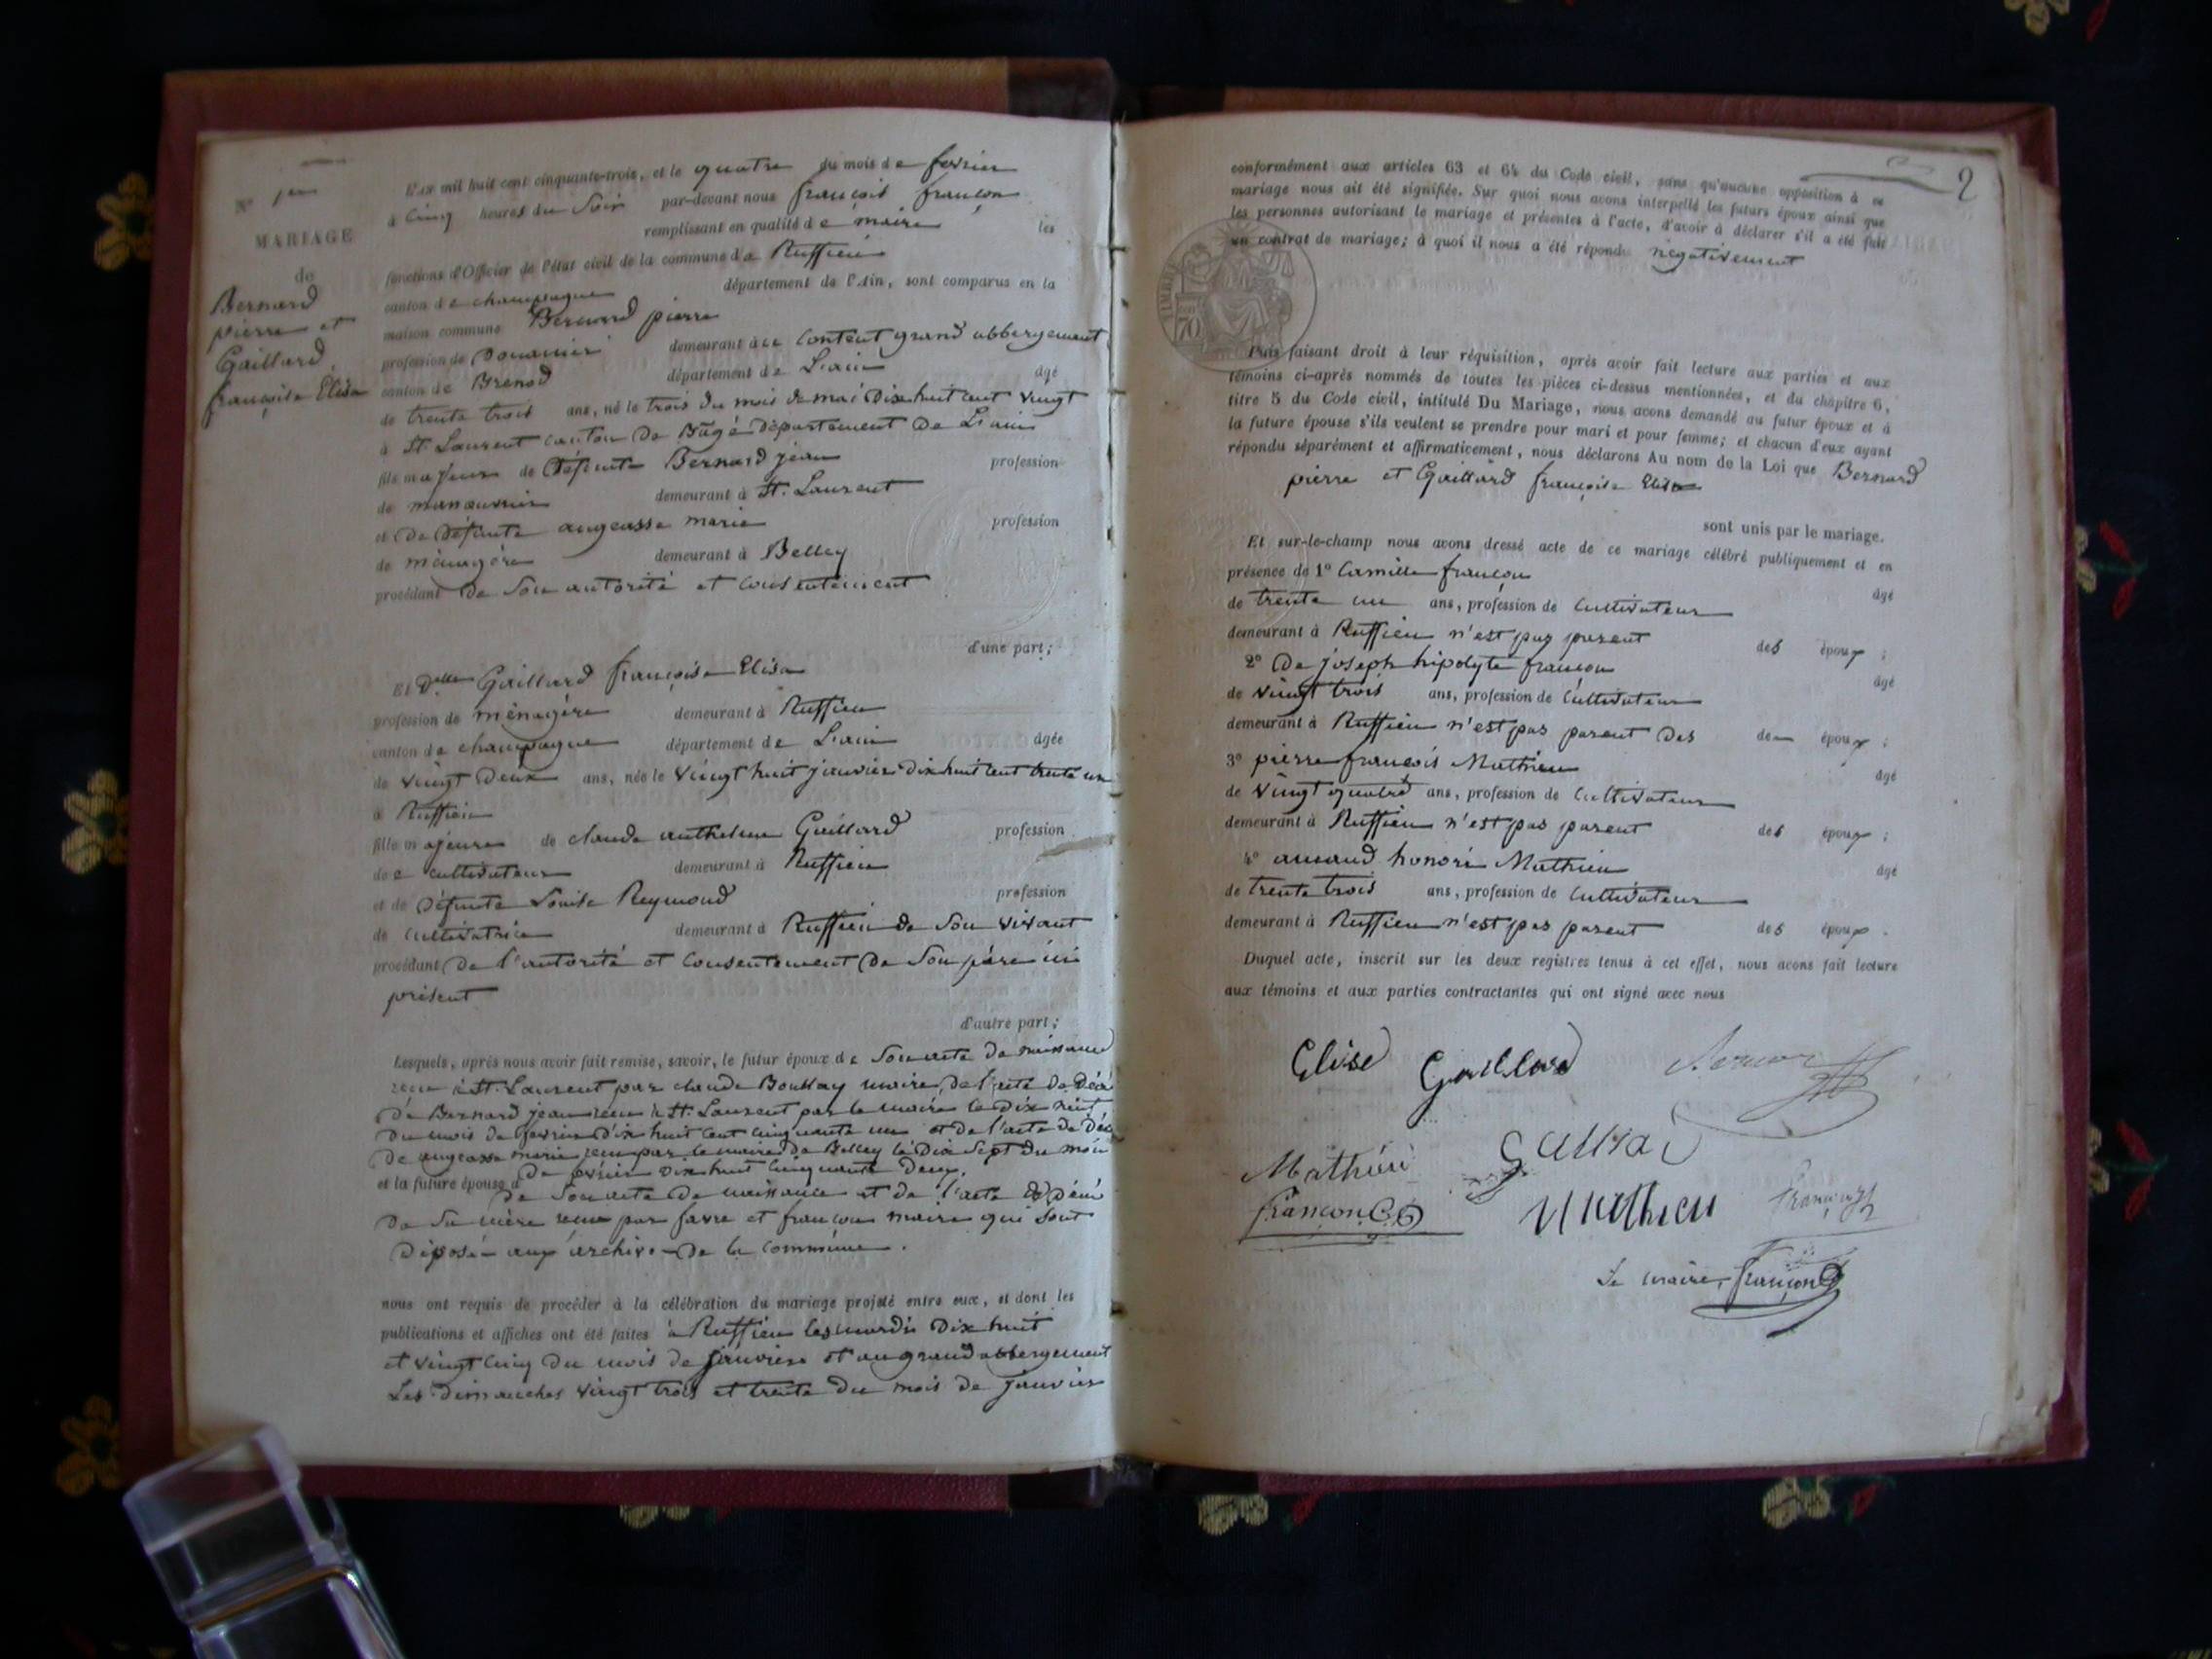 N° 1er
MARIAGE
de
Bernard
pierre et
Gaillard
françoise Elisa
L'an mil huit cent cinquante-trois, et le quatre du mois de fevrier
à Cinq heures du Soir par-devant nous françois françon
remplissant en qualité de maire les
fonctions d'Officier de l'état civil de la commune de Ruffieu
canton de champagne département de l'Ain, sont comparus en la
maison commune Bernard pierre
profession de Douanier demeurant à grand abbergement
canton de Brenod département de L'ain âgé
de trente trois ans, né le trois du mois de mai Dix huit cent vingt
à St. Laurent canton de Bâgé département de L'ain
fils majeur de Défunt Bernard jean profession
de manœuvrier demeurant à St. Laurent
et de Défunte angeasse marie profession
de ménagère demeurant à Belley
procédant de Son autorité et Consentement
d'une part;
Et Delle Gaillard françoise Elisa
profession de ménagère demeurant à Ruffieu
canton de champagne département de L'ain âgée
de vingt Deux ans, née le vingt huit janvier Dix huit cent trente un
à Ruffieu
fille majeure de claude anthelme Gaillard profession
de cultivateur demeurant à Ruffieu
et de Défunte Louise Reymond profession
de Cultivatrice demeurant à Ruffieu de Son vivant
procédant de l'autorité et Consentement de Son père ici
présent
d'autre part;
Lesquels, après nous avoir fait remise, savoir, le futur époux de Son acte de naissance
reçu à St. Laurent par claude maire, de l'acte de Décè
de Bernard jean reçu à St. Laurent par le maire le Dix
du mois de fevrier Dix huit cent cinquante un et de l'acte de Décè
de angeasse marie reçu par le maire de Belley le Dix Sept du mois
de fevrier Dix huit cinquante Deux,
et la future épouse de Son acte de naissance et de l'acte de Décè
de Sa mère reçu par favre et françon maire qui Sont
Déposé aux archive de la Commune.
nous ont requis de procéder à la célébration du mariage projeté entre eux, et dont les
publications et affiches ont été faites à Ruffieu les mardis Dix huit
et vingt cinq du mois de janvier et au grand abbergement
Les Dimanches vingt trois et trente du mois de janvier
2
conformément aux articles 63 et 64 du Code civil, sans qu'aucune opposition à ce
mariage nous ait été signifiée. Sur quoi nous avons interpellé les futurs époux ainsi que
les personnes autorisant le mariage et présentes à l'acte, d'avoir à déclarer s'il a été fait
un contrat de mariage; à quoi il nous a été répondu négativement
TIMBRE
70
Puis faisant droit à leur réquisition, après avoir fait lecture aux parties et aux
témoins ci-après nommés de toutes les pièces ci-dessus mentionnées, et du chapitre 6,
titre 5 du Code civil, intitulé Du Mariage, nous avons demandé au futur époux et à
la future épouse s'ils veulent se prendre pour mari et pour femme; et chacun d'eux ayant
répondu séparément et affirmativement, nous déclarons Au nom de la Loi que Bernard
pierre et Gaillard françoise Elisa
sont unis par le mariage.
Et sur-le-champ nous avons dressé acte de ce mariage célébré publiquement et en
présence de 1° Camille françon âgé
de trente un ans, profession de Cultivateur
demeurant à Ruffieu n'est pas parent des époux;
2° De joseph hipolyte françon âgé
de vingt trois ans, profession de Cultivateur
demeurant à Ruffieu n'est pas parent des de époux;
3° pierre françois Mathieu âgé
de vingt quatre ans, profession de Cultivateur
demeurant à Ruffieu n'est pas parent des époux;
4° amand honoré Mathieu âgé
de trente trois ans, profession de Cultivateur
demeurant à Ruffieu n'est pas parent des époux.
Duquel acte, inscrit sur les deux registres tenus à cet effet, nous avons fait lecture
aux témoins et aux parties contractantes qui ont signé avec nous
Elise Gaillard
Mathieu
françon
Mathieu
Le maire, françon